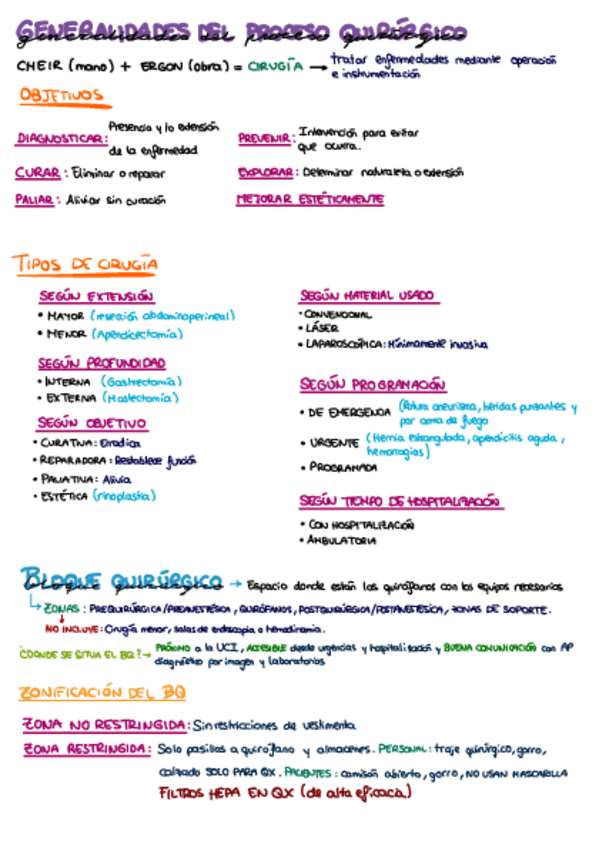 GENERALIDADES DEL PROCESO QUIRÚRGICO
generalidades del proceso quirúrgico
CHEIR (mano) + ERGON (obra) = CIRUGÍA → tratar enfermedades mediante operación
e instrumentación
OBJETIVOS
DIAGNOSTICAR: Presencia y/o extensión
de la enfermedad
PREVENIR: Intervención para evitar
que ocurra.
CURAR: Eliminar o reparar
EXPLORAR: Determinar naturaleza o extensión
PALIAR: Aliviar sin curación
MEJORAR ESTÉTICAMENTE
TIPOS DE CIRUGÍA
SEGÚN EXTENSIÓN
• MAYOR (resección abdominoperineal)
• MENOR (Apendicectomía)
SEGÚN PROFUNDIDAD
• INTERNA (Gastrectomía)
• EXTERNA (Mastectomía)
SEGÚN OBJETIVO
• CURATIVA: Erradica
• REPARADORA: Restablece función
• PALIATIVA: Alivia
• ESTÉTICA (rinoplastia)
SEGÚN MATERIAL USADO
• CONVENCIONAL
• LÁSER
• LAPAROSCÓPICA: Mínimamente invasiva
SEGÚN PROGRAMACIÓN
• DE EMERGENCIA (Rotura aneurisma, heridas punzantes y
por arma de fuego
• URGENTE (Hernia estrangulada, apendicitis aguda,
hemorragias)
• PROGRAMADA
SEGÚN TIEMPO DE HOSPITALIZACIÓN
• CON HOSPITALIZACIÓN
• AMBULATORIA
BLOQUE QUIRÚRGICO → Espacio donde están los quirófanos con los equipos necesarios
bloque quirúrgico
↳ ZONAS: PREQUIRÚRGICA/PREANESTÉSICA, QUIRÓFANOS, POSTQUIRÚRGICA/POSTANESTÉSICA, ZONAS DE SOPORTE.
NO INCLUYE: Cirugía menor, salas de endoscopia o hemodinamia.
¿DONDE SE SITUA EL BQ? → PRÓXIMO a la UCI, ACCESIBLE desde urgencias y hospitalización y BUENA COMUNICACIÓN con AP
diagnóstico por imagen y laboratorios
ZONIFICACIÓN DEL BQ
ZONA NO RESTRINGIDA: Sin restricciones de vestimenta
ZONA RESTRINGIDA: Solo pasillos a quirófano y almacenes. PERSONAL: traje quirúrgico, gorro,
calzado SOLO PARA QX. PACIENTES: camisón abierto, gorro, NO USAN MASCARILLA
FILTROS HEPA EN QX (de alta eficacia)